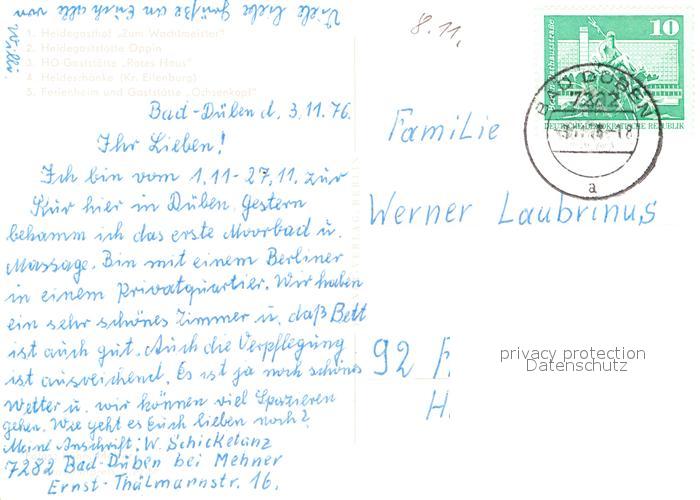 Viele liebe Grüße an Euch alle von
Willi.
1. Heidegasthof „Zum Wachtmeister“
2. Heidegaststätte Oppin
3. HO-Gaststätte „Rotes Haus“
4. Heideschänke (Kr. Eilenburg)
5. Ferienheim und Gaststätte „Ochsenkopf“
Bad-Düben d. 3.11.76.
Ihr Lieben!
Ich bin vom 1.11-27.11. zur
Kur hier in Düben. Gestern
bekamm ich das erste Moorbad u.
Massage. Bin mit einem Berliner
in einem Privatquartier. Wir haben
ein sehr schönes Zimmer u. daß Bett
ist auch gut. Auch die Verpflegung
ist ausreichend. Es ist ja noch schönes
Wetter u. wir können viel Spazieren
gehen. Wie geht es Euch lieben noch?
Meine Anschrift: W. Schickelanz
7282 Bad-Düben bei Mehner
Ernst-Thälmannstr. 16.
8.11.
10
BAD DÜBEN
7282
a
DEUTSCHE DEMOKRATISCHE REPUBLIK
Familie
Werner Laubrinus
92 F.
H.
privacy protection
Datenschutz